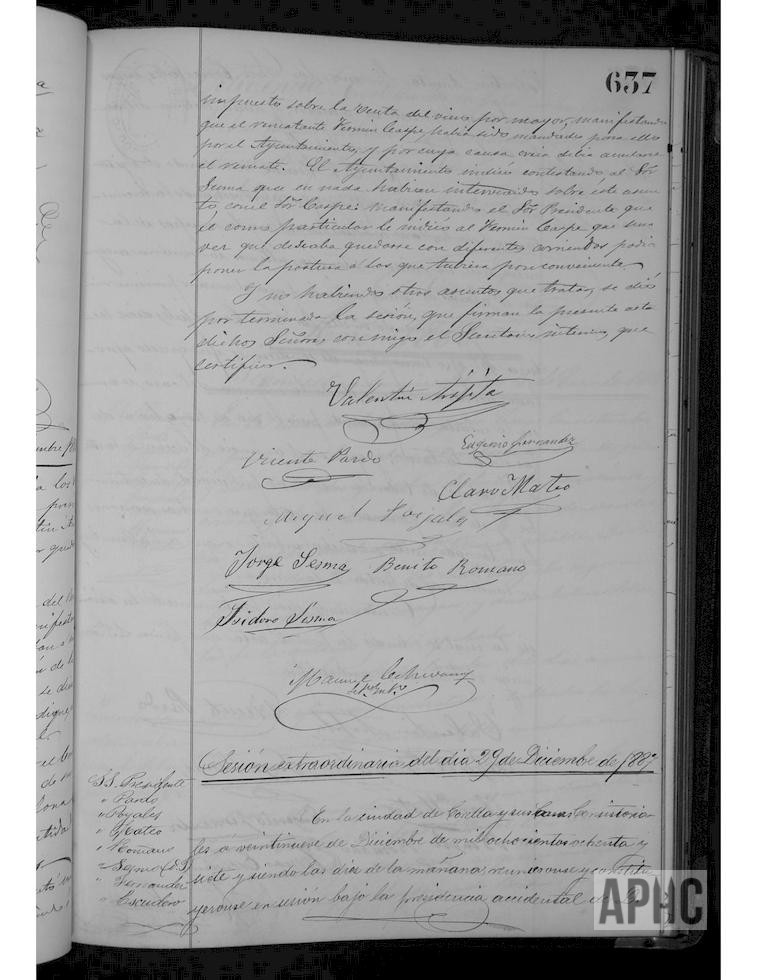 637
impuesto sobre la venta del vino por mayor, manifestando
que el rematante Fermin Caspe, habia sido mandado para ello
por el Ayuntamiento, y por cuya causa creia debia anularse
el remate. El Ayuntamiento indicó contestando al Sor
Sesma que en nada habian intervenido sobre este asun
to con el Sor Caspe: manifestando el Sor Presidente que
él como particular le indicó al Fermin Caspe que una
vez que deseaba quedarse con diferentes arriendos podia
poner la postura á los que tubiera por conveniente.
Y no habiendo otros asuntos que tratar, se dió
por terminada la sesión, que firman la presente acta
dichos Señores conmigo el Secretario interino, que
certifico.
Valentin
Vicente Pardo
Eugenio Fernandez
Claro Mateo
Miguel Poyales
Jorge Sesma
Benito Romano
Isidoro Sesma
Manuel
Sesión extraordinaria del dia 29 de Diciembre de 1887
S.S. Presidente
" Pardo
" Poyales
" Mateo
" Romano
" Sesma (d. J)
" Fernandez
" Escudero
En la ciudad de Corella y sus Casas Consistoria-
les á veintinueve de Diciembre de mil ochocientos ochenta y
siete y siendo las diez de la mañana, reunieronse y constitu
yeronse en sesión bajo la presidencia accidental de
APHC